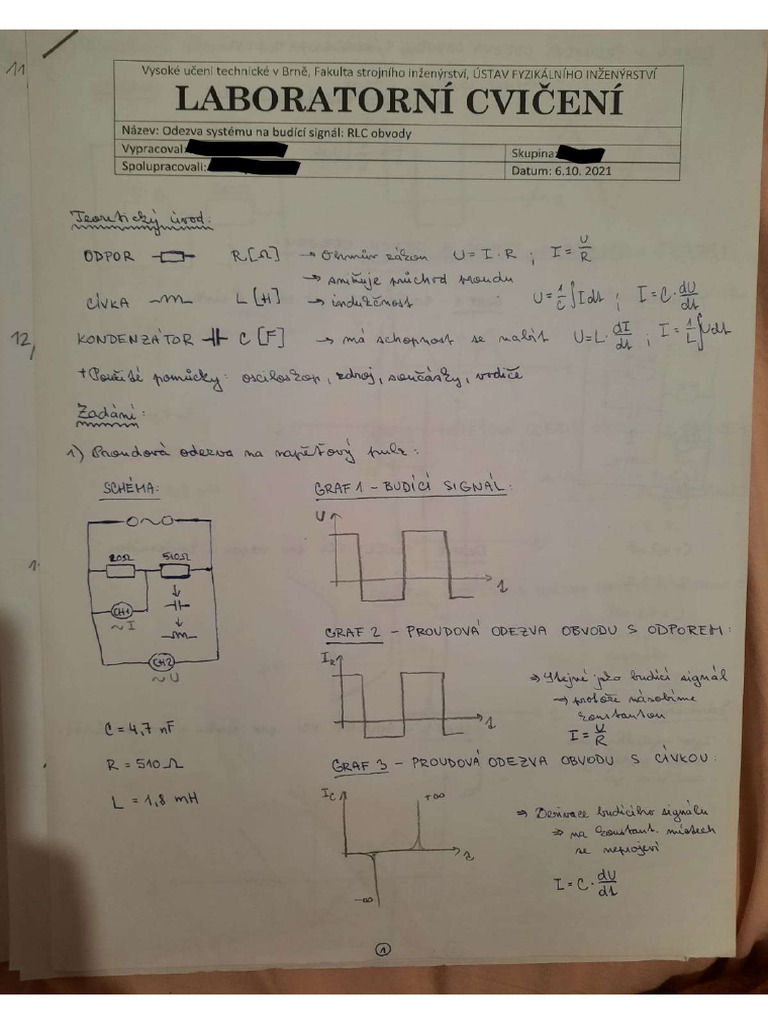 11
Vysoké učení technické v Brně, Fakulta strojního inženýrství, ÚSTAV FYZIKÁLNÍHO INŽENÝRSTVÍ
LABORATORNÍ CVIČENÍ
Název: Odezva systému na budící signál: RLC obvody
Vypracoval:
Skupina:
Spolupracovali:
Datum: 6.10. 2021
Teoretický úvod:
ODPOR R[Ω] → Ohmův zákon U = I · R ; I = U/R
→ snižuje průchod proudu
CÍVKA L [H] → indukčnost U = 1/C ∫ I dt ; I = C · dU/dt
12,
KONDENZÁTOR C [F] → má schopnost se nabít U = L · dI/dt ; I = 1/L ∫ U dt
+ Použité pomůcky: osciloskop, zdroj, součásky, vodiče
Zadání:
1) Proudová odezva na napěťový pulz:
SCHÉMA:
GRAF 1 - BUDÍCÍ SIGNÁL:
U
t
20Ω 510Ω
CH1
~ I
CH2
~ U
GRAF 2 - PROUDOVÁ ODEZVA OBVODU S ODPOREM:
I_R
t
→ Stejné jako budící signál
→ protože násobíme
konstantou
I = U/R
C = 4,7 nF
R = 510 Ω
L = 1,8 mH
GRAF 3 - PROUDOVÁ ODEZVA OBVODU S CÍVKOU:
I_C
+∞
t
-∞
→ Derivace budícího signálu
→ na konstant. místech
se neprojeví
I = C · dU/dt
1